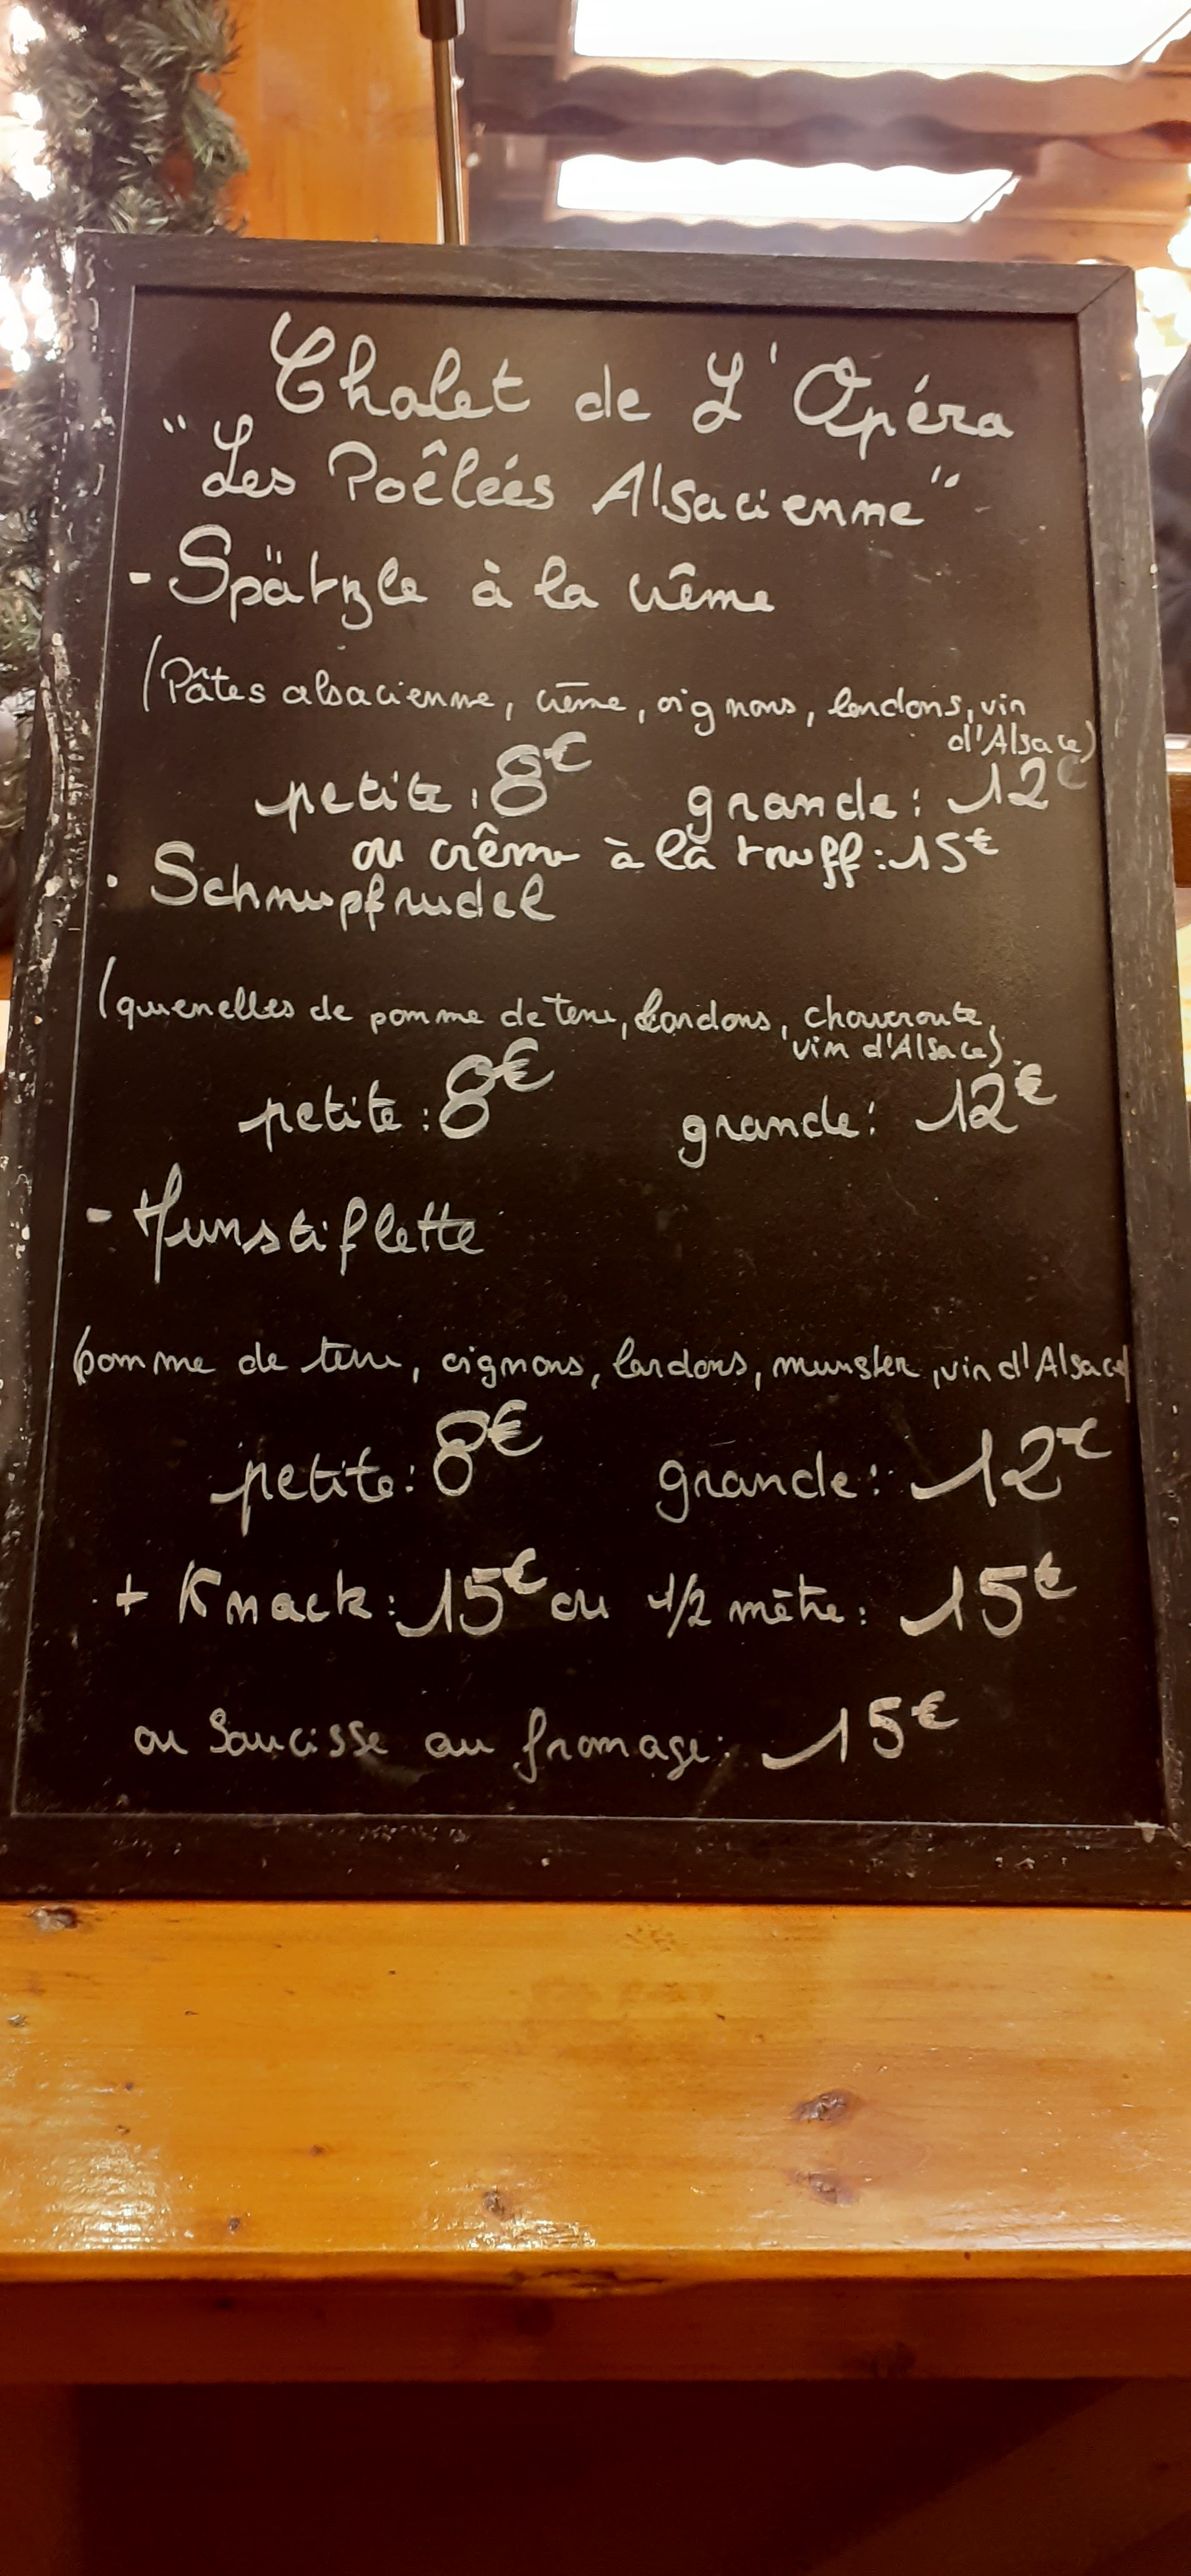 Chalet de L'Opéra
"Les Poêlées Alsacienne"
- Spätzle à la crême
(Pâtes alsacienne, crême, oignons, lardons, vin
d'Alsace)
petite : 8€ grande : 12€
ou crême à la truff : 15€
· Schnupfnudel
(quenelles de pomme de terre, lardons, choucroute,
vin d'Alsace).
petite : 8€ grande : 12€
- Munstiflette
(pomme de terre, oignons, lardons, munster, vin d'Alsace)
petite : 8€ grande : 12€
+ Knack : 15€ ou 1/2 mètre : 15€
ou Saucisse au fromage : 15€